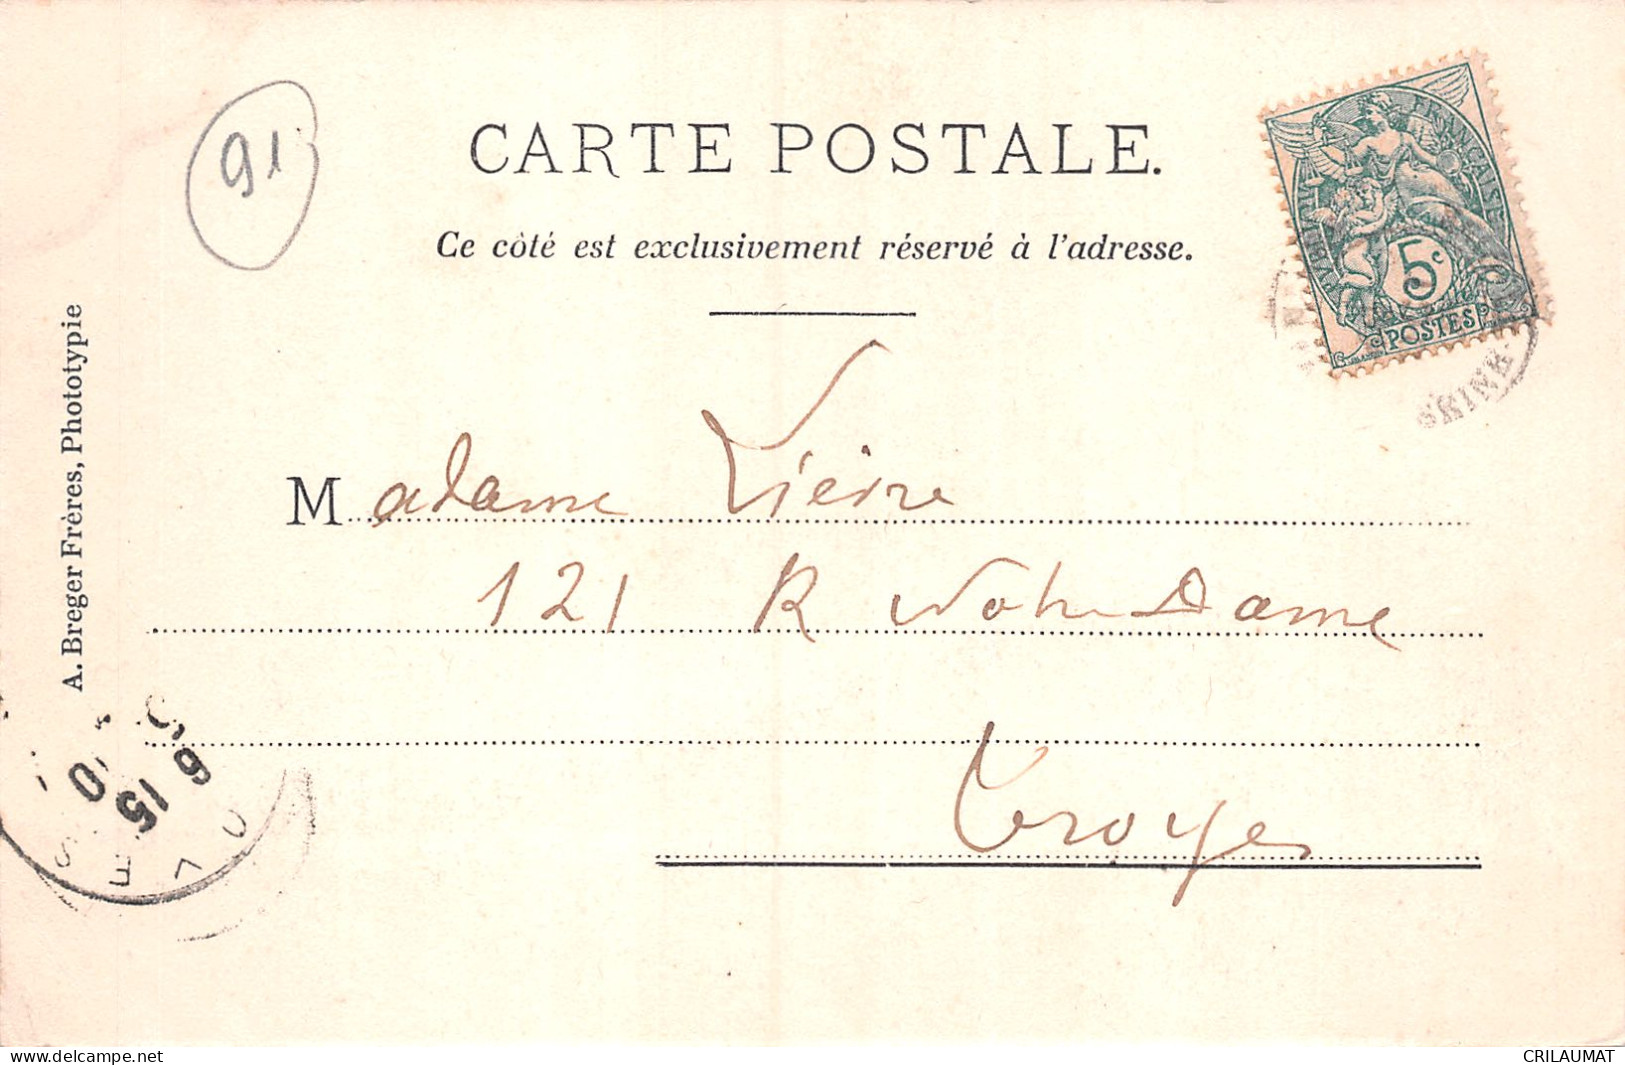 91
CARTE POSTALE.
Ce côté est exclusivement réservé à l'adresse.
RÉPUBLIQUE FRANÇAISE
5c
POSTES
SEINE
A. Breger Frères, Phototypie
Madame
121 R Notre Dame
Troyes
15
6
website: delcampe.net
CRILAUMAT